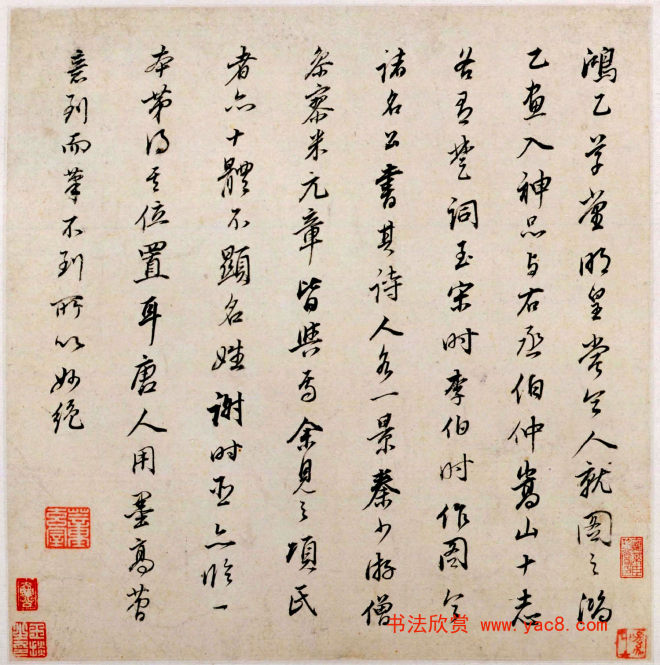 鴻乙草堂明皇嘗令人就圖之鴻
乙畫入神品与右丞伯仲嵩山十志
若有楚詞至宋时李伯时作图令
諸名公書其诗人各一景秦少游僧
参寥米元章皆與焉余見之項氏
者亦十體不顯名姓謝时臣亦临一
本苐得其位置耳唐人用墨高苔
意到而筆不到所以妙绝
书法欣赏 www.yac8.com